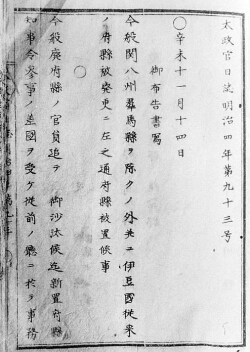 太政官日誌明治四年第九十三号
○辛未十一月十四日
御布告書写
今般関八州群馬縣ヲ除クノ外並ニ伊豆國従来
ノ府縣被廃更ニ左之通府縣被置候事
○
今般廃府縣ノ官員追テ 御沙汰候迄新置府縣
知事令参事ノ差圖ヲ受ケ従前ノ廳ニ於テ事務